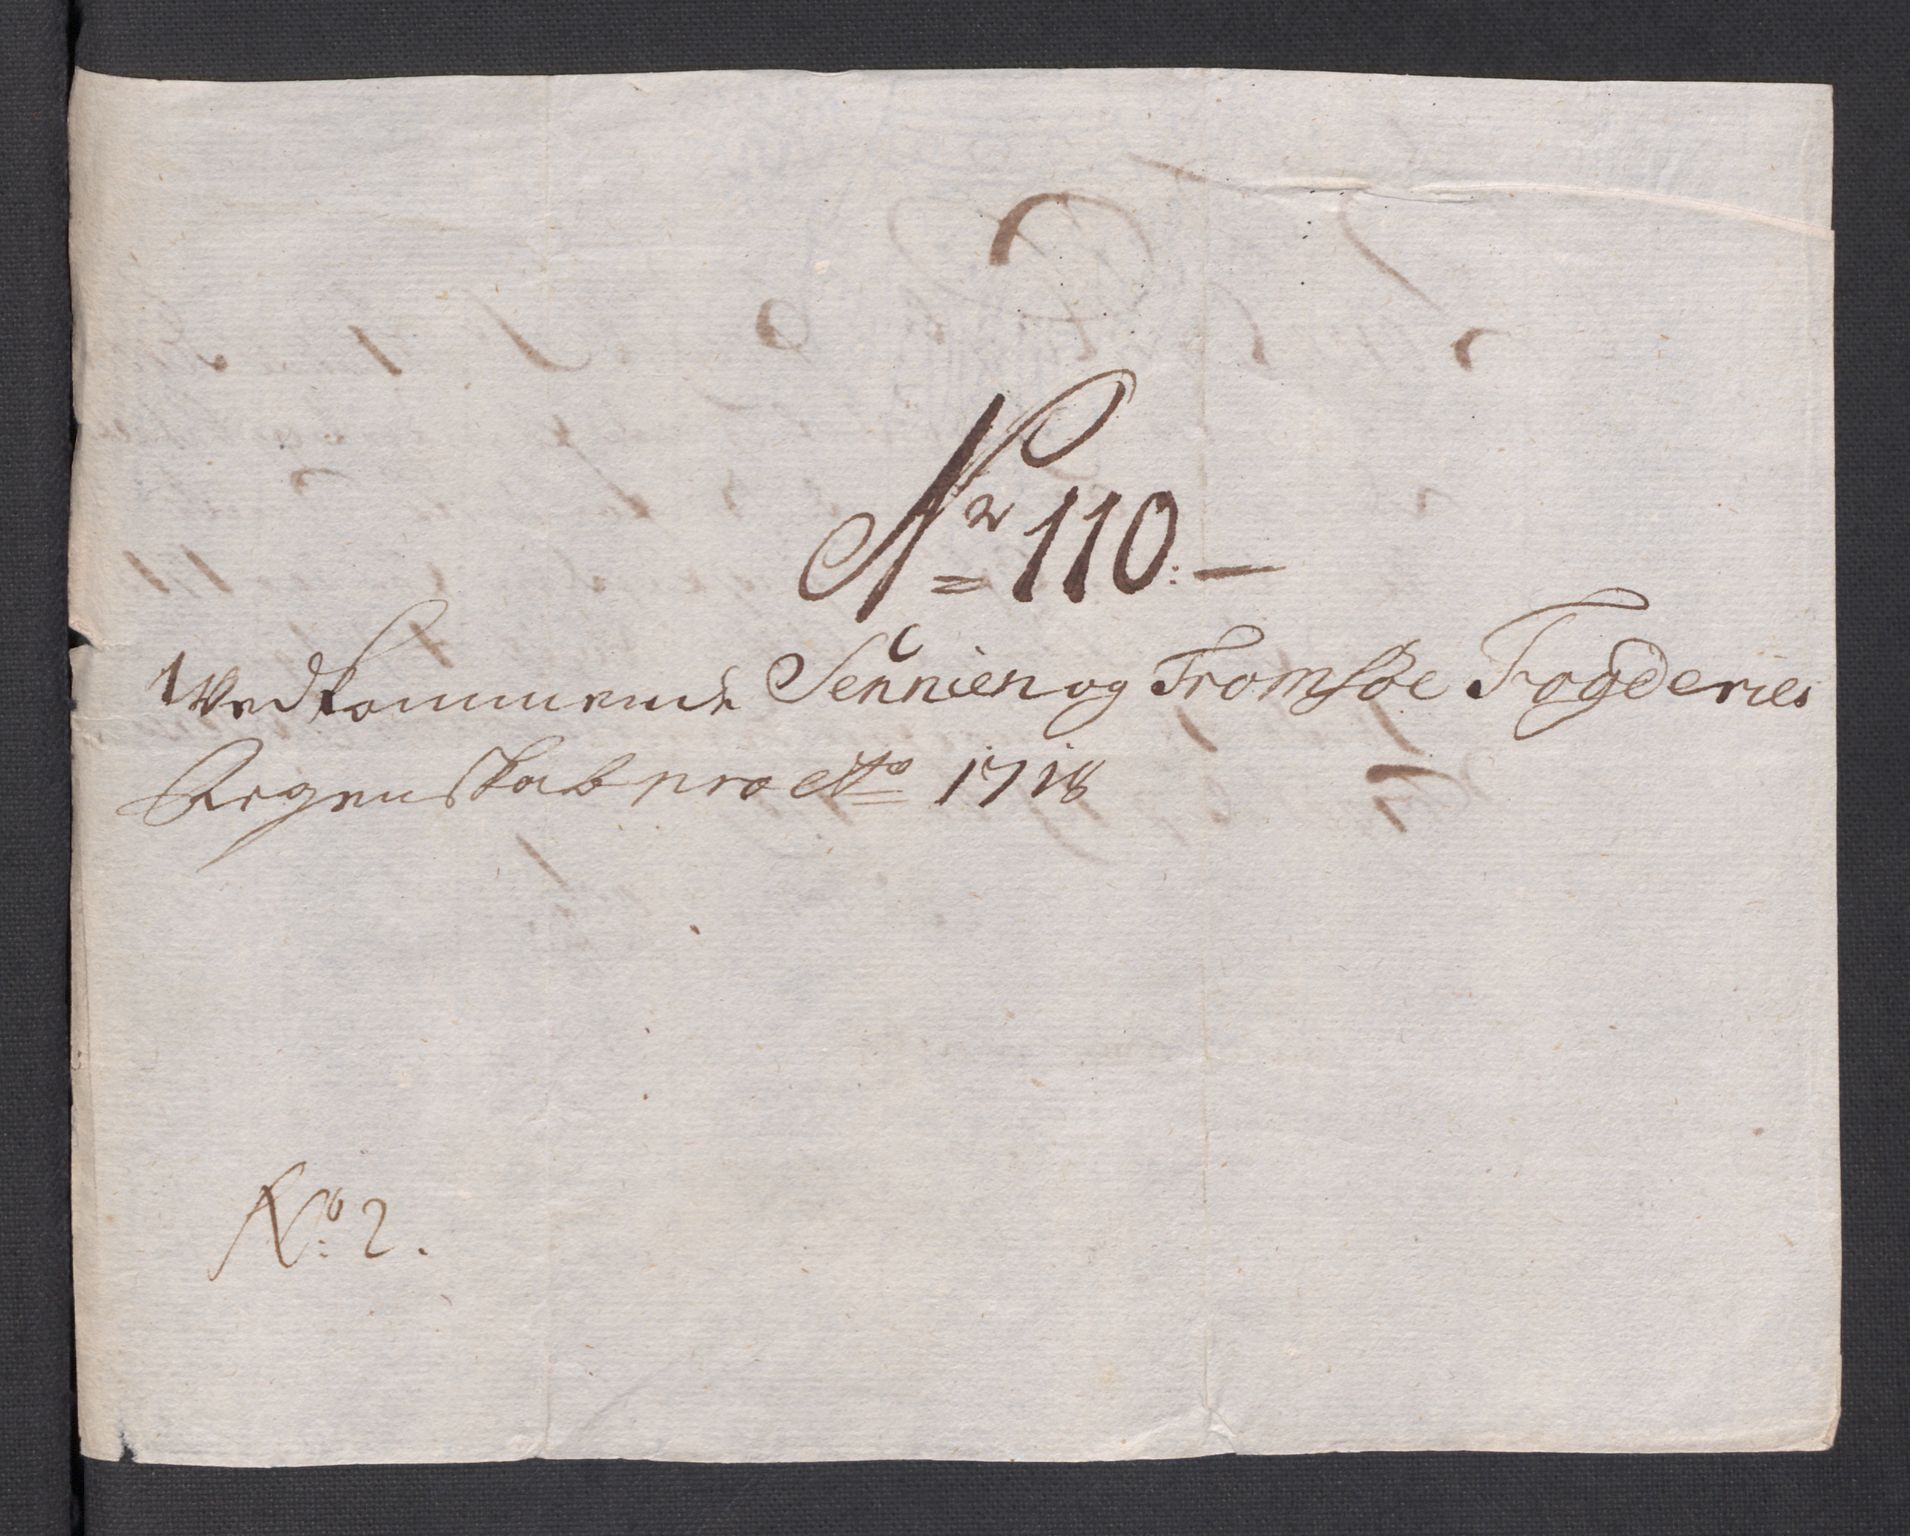 Nr 110:—
Vedkommende Sennien og Tromsøe Fogderies
Regenskab pro Ao 1718
No: 2.